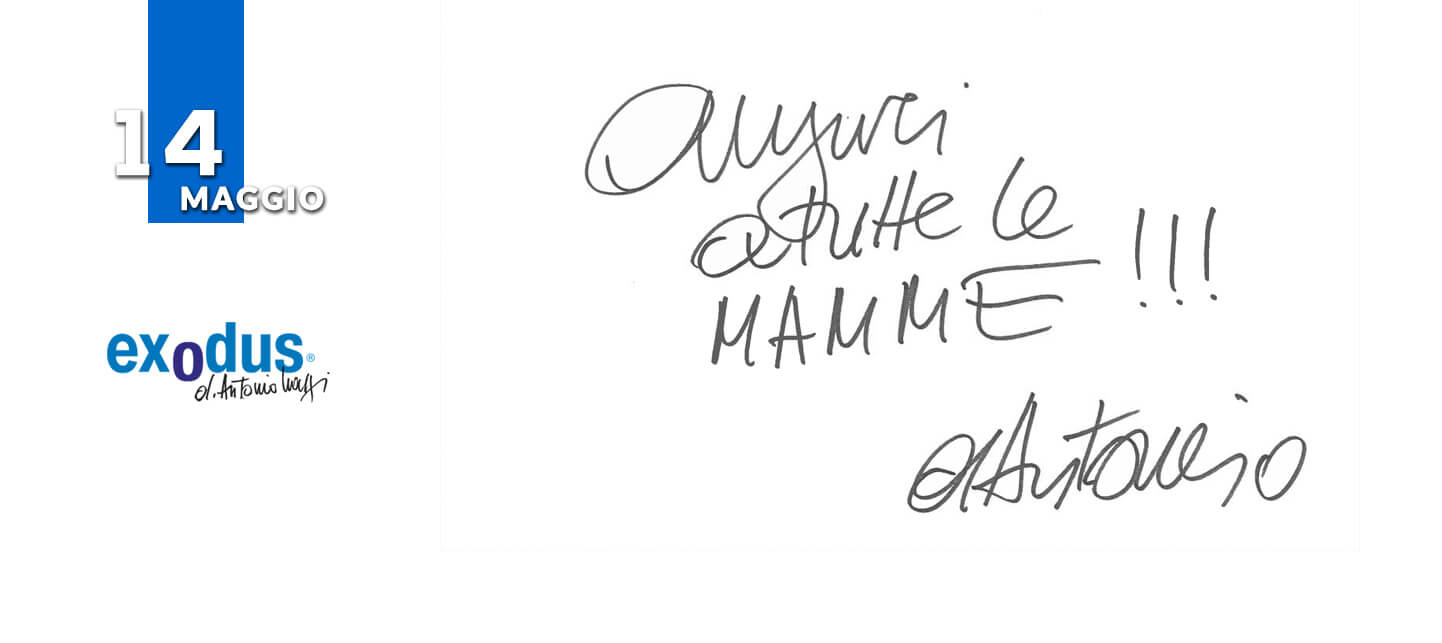 14
MAGGIO
exodus®
d. Antonio Mazzi
Auguri
a tutte le
MAMME!!!
d Antonio